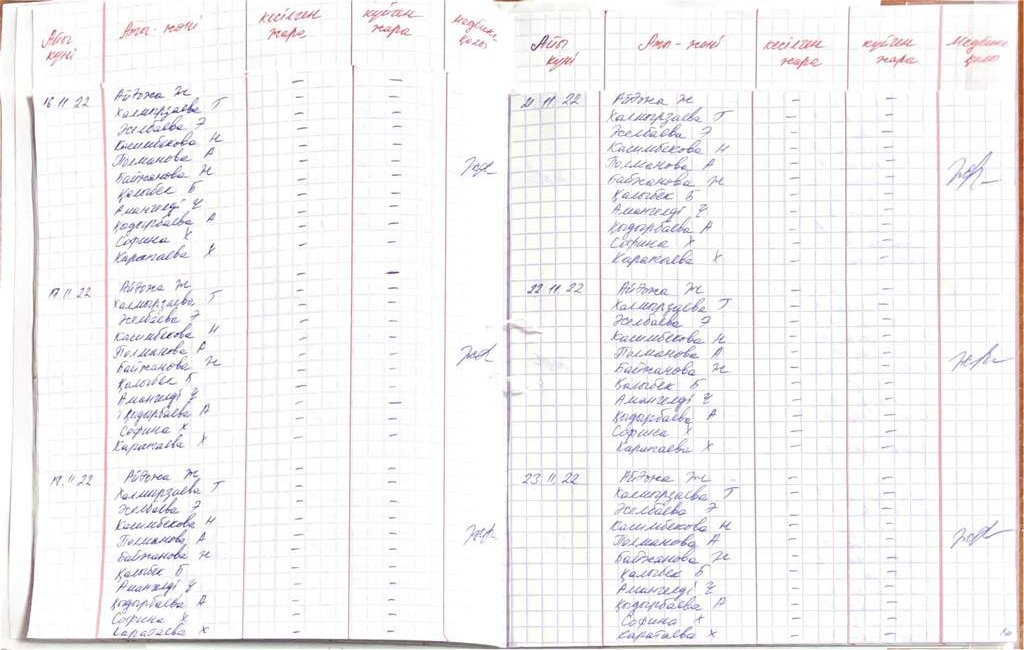 Айы күні Аты-жөні кесілген жара күйген жара Медбике қолы
16 11 22 Айдожа Ж – –
Халмырзаева Т – –
Желбаева Э – –
Касимбекова Н – –
Полманова А – –
Байжанова Ж – –
Қалыбек Б – –
Амангелді Ұ – –
Қыдырбаева А – –
Софина Х – –
Каратаева Х – –
17.11.22 Айдожа Ж – –
Халмырзаева Т – –
Желбаева Э – –
Касимбекова Н – –
Полманова А – –
Байжанова Ж – –
Қалыбек Б – –
Амангелді Ұ – –
Қыдырбаева А – –
Софина Х – –
Каратаева Х – –
19.11 22 Айдожа Ж – –
Халмырзаева Т – –
Желбаева Э – –
Касимбекова Н – –
Полманова А – –
Байжанова Ж – –
Қалыбек Б – –
Амангелді Ұ – –
Қыдырбаева А – –
Софина Х – –
Каратаева Х – –
Айы күні Аты-жөні кесілген жара күйген жара Медбике қолы
21.11 22 Айдожа Ж – –
Халмырзаева Т – –
Желбаева Э – –
Касимбекова Н – –
Полманова А – –
Байжанова Ж – –
Қалыбек Б – –
Амангелді Ұ – –
Қыдырбаева А – –
Софина Х – –
Каратаева Х – –
22 11 22 Айдожа Ж – –
Халмырзаева Т – –
Желбаева Э – –
Касимбекова Н – –
Полманова А – –
Байжанова Ж – –
Қалыбек Б – –
Амангелді Ұ – –
Қыдырбаева А – –
Софина Х – –
Каратаева Х – –
23 11 22 Айдожа Ж – –
Халмырзаева Т – –
Желбаева Э – –
Касимбекова Н – –
Полманова А – –
Байжанова Ж – –
Қалыбек Б – –
Амангелді Ұ – –
Қыдырбаева А – –
Софина Х – –
Каратаева Х – –